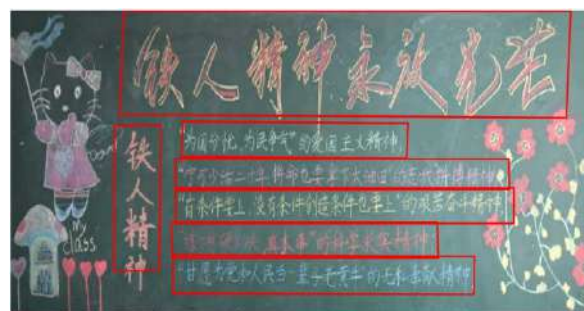 铁人精神永放光芒
铁人精神
"为国分忧、为民争气"的爱国主义精神,
"宁可少活二十年,拼命也要拿下大油田"的忘我拼搏精神
"有条件要上,没有条件创造条件也要上"的艰苦奋斗精神
"的科学求实精神
"甘愿为党和人民当一辈子老黄牛"的无私奉献精神
My
class